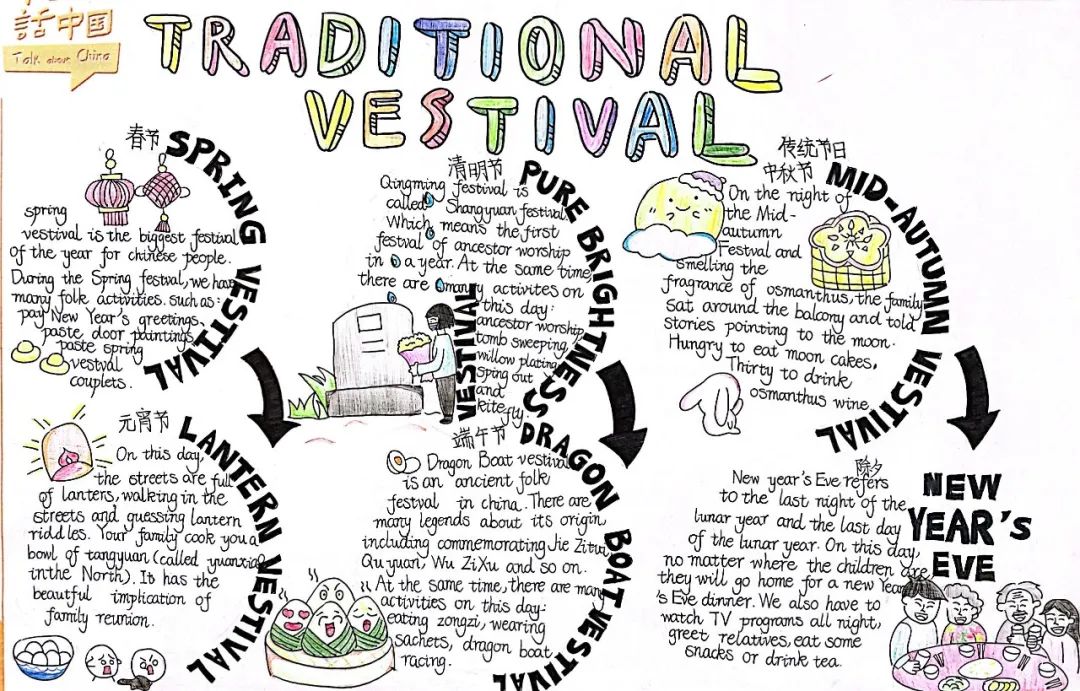 話中国
Talk about China
TRADITIONAL
VESTIVAL
传统节日
春节
SPRING VESTIVAL
spring
vestival is the biggest festival
of the year for chinese people.
During the Spring festval, we have
many folk activities. such as:
pay New Year's greetings,
paste door paintings,
paste spring
vestval
couplets.
元宵节
LANTERN VESTIVAL
On this day,
the streets are full
of lanters, walking in the
streets and guessing lantern
riddles. Your family cook you a
bowl of tangyuan (called yuanxiao
in the North). It has the
beautiful implication of
family reunion.
清明节
PURE BRIGHTNESS
VESTIVAL
Qingming festival is
called Shangyuan festival
Which means the first
festval of ancestor worship
in a year. At the same time,
there are many activites on
this day:
ancestor worship
tomb sweeping,
willow plating
sping out
and
kite fly.
端午节
DRAGON BOAT VESTIVAL
Dragon Boat vestival
is an ancient folk
festval in china. There are
many legends about its origin,
including commemorating Jie Zitui,
Qu yuan, Wu ZiXu and so on.
At the same time, there are many
activities on this day:
eating zongzi, wearing
sachets, dragon boat
racing.
中秋节
MID-AUTUMN VESTIVAL
On the night of
the Mid-
autumn
Festval and
smelling the
fragrance of osmanthus, the family
sat around the balcony and told
stories pointing to the moon.
Hungry to eat moon cakes,
Thirty to drink
osmanthus wine.
除夕
NEW
YEAR'S
EVE
New year's Eve refers
to the last night of the
lunar year and the last day
of the lunar year. On this day,
no matter where the children are
they will go home for a new Year
's Eve dinner. We also have to
watch TV programs all night,
greet relatives, eat some
snacks or drink tea.